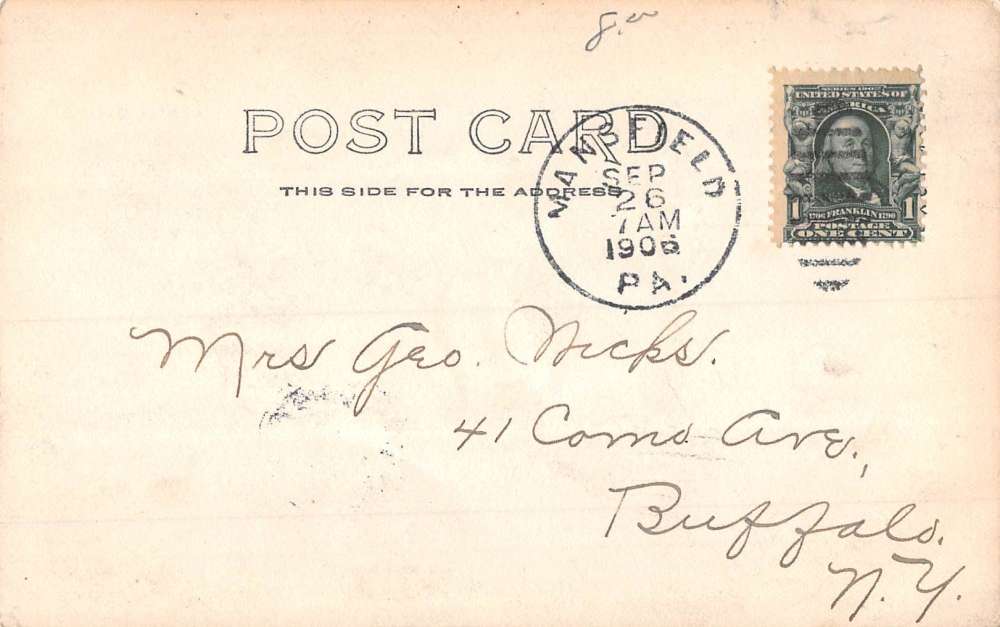 8.
POST CARD
THIS SIDE FOR THE ADDRESS
MANSFIELD
SEP
26
7 AM
1906
PA.
SERIES 1902
UNITED STATES OF
AMERICA
1 1706 FRANKLIN 1790 1
POSTAGE
ONE CENT
Mrs Geo.
41 Como Ave.,
Buffalo.
N.Y.